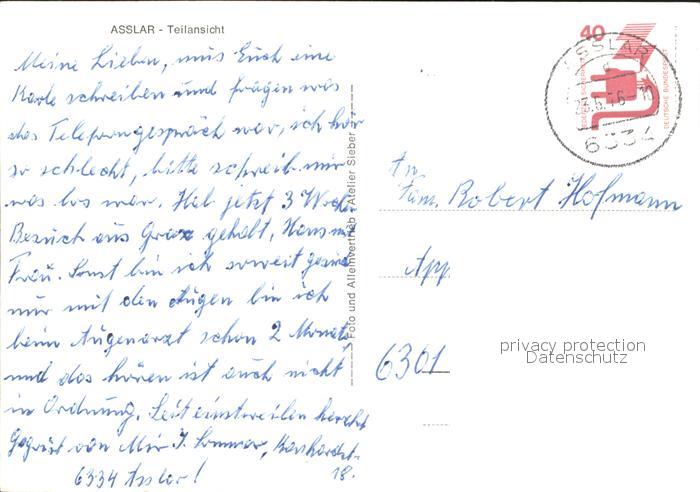 ASSLAR - Teilansicht
Meine Lieben, mus Euch eine
Karte schreiben und fragen was
das Telefongespräch war, ich hör
so schlecht, bitte schreib mir
was los war. Hab jetzt 3 Wochen
Besuch aus Graz gehabt, Hans m
Frau. Sonst bin ich soweit gesund
nur mit den Augen bin ich
beim Augenarzt schon 2 Monate
und das hören ist auch nicht
in Ordnung. Seit einstweilen herzlich
Gegrüst von Mir J. Sommer,
18.
6334 Asslar!
Foto und Alleinvertrieb: Atelier Sieber
40
DEUTSCHE BUNDESPOST
ASSLAR
23.6.76-10
6334
An
Fam. Robert Hofmann
App
6301
privacy protection
Datenschutz